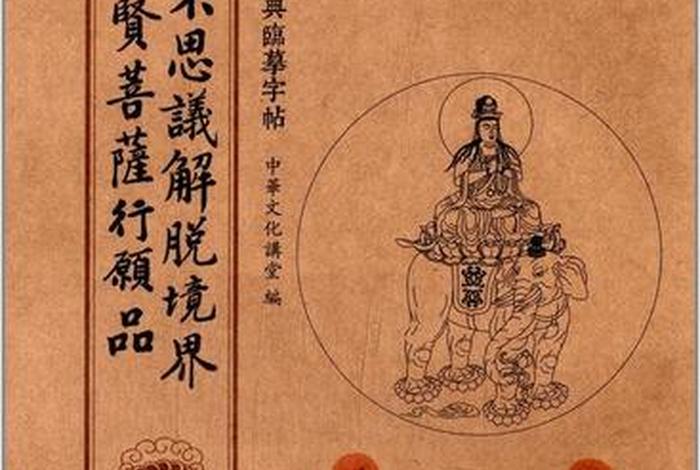 不思議解脫境界
賢菩薩行願品
典臨摹字帖
中華文化講堂 編